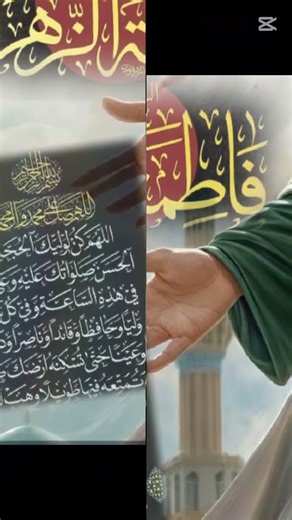 ة الزهر
فاطمـ
بسم الله الرحمن الرحيم
اللهم صل على محمد وآل محمد
اللهم كن لوليك الحجة
الحسن صلواتك عليه وع
في هذه الساعة وفي كل
وليا وحافظا وقائدا وناصرا ود
وعينا حتى تسكنه ارضك ط
وتمتعه فيها طويلا